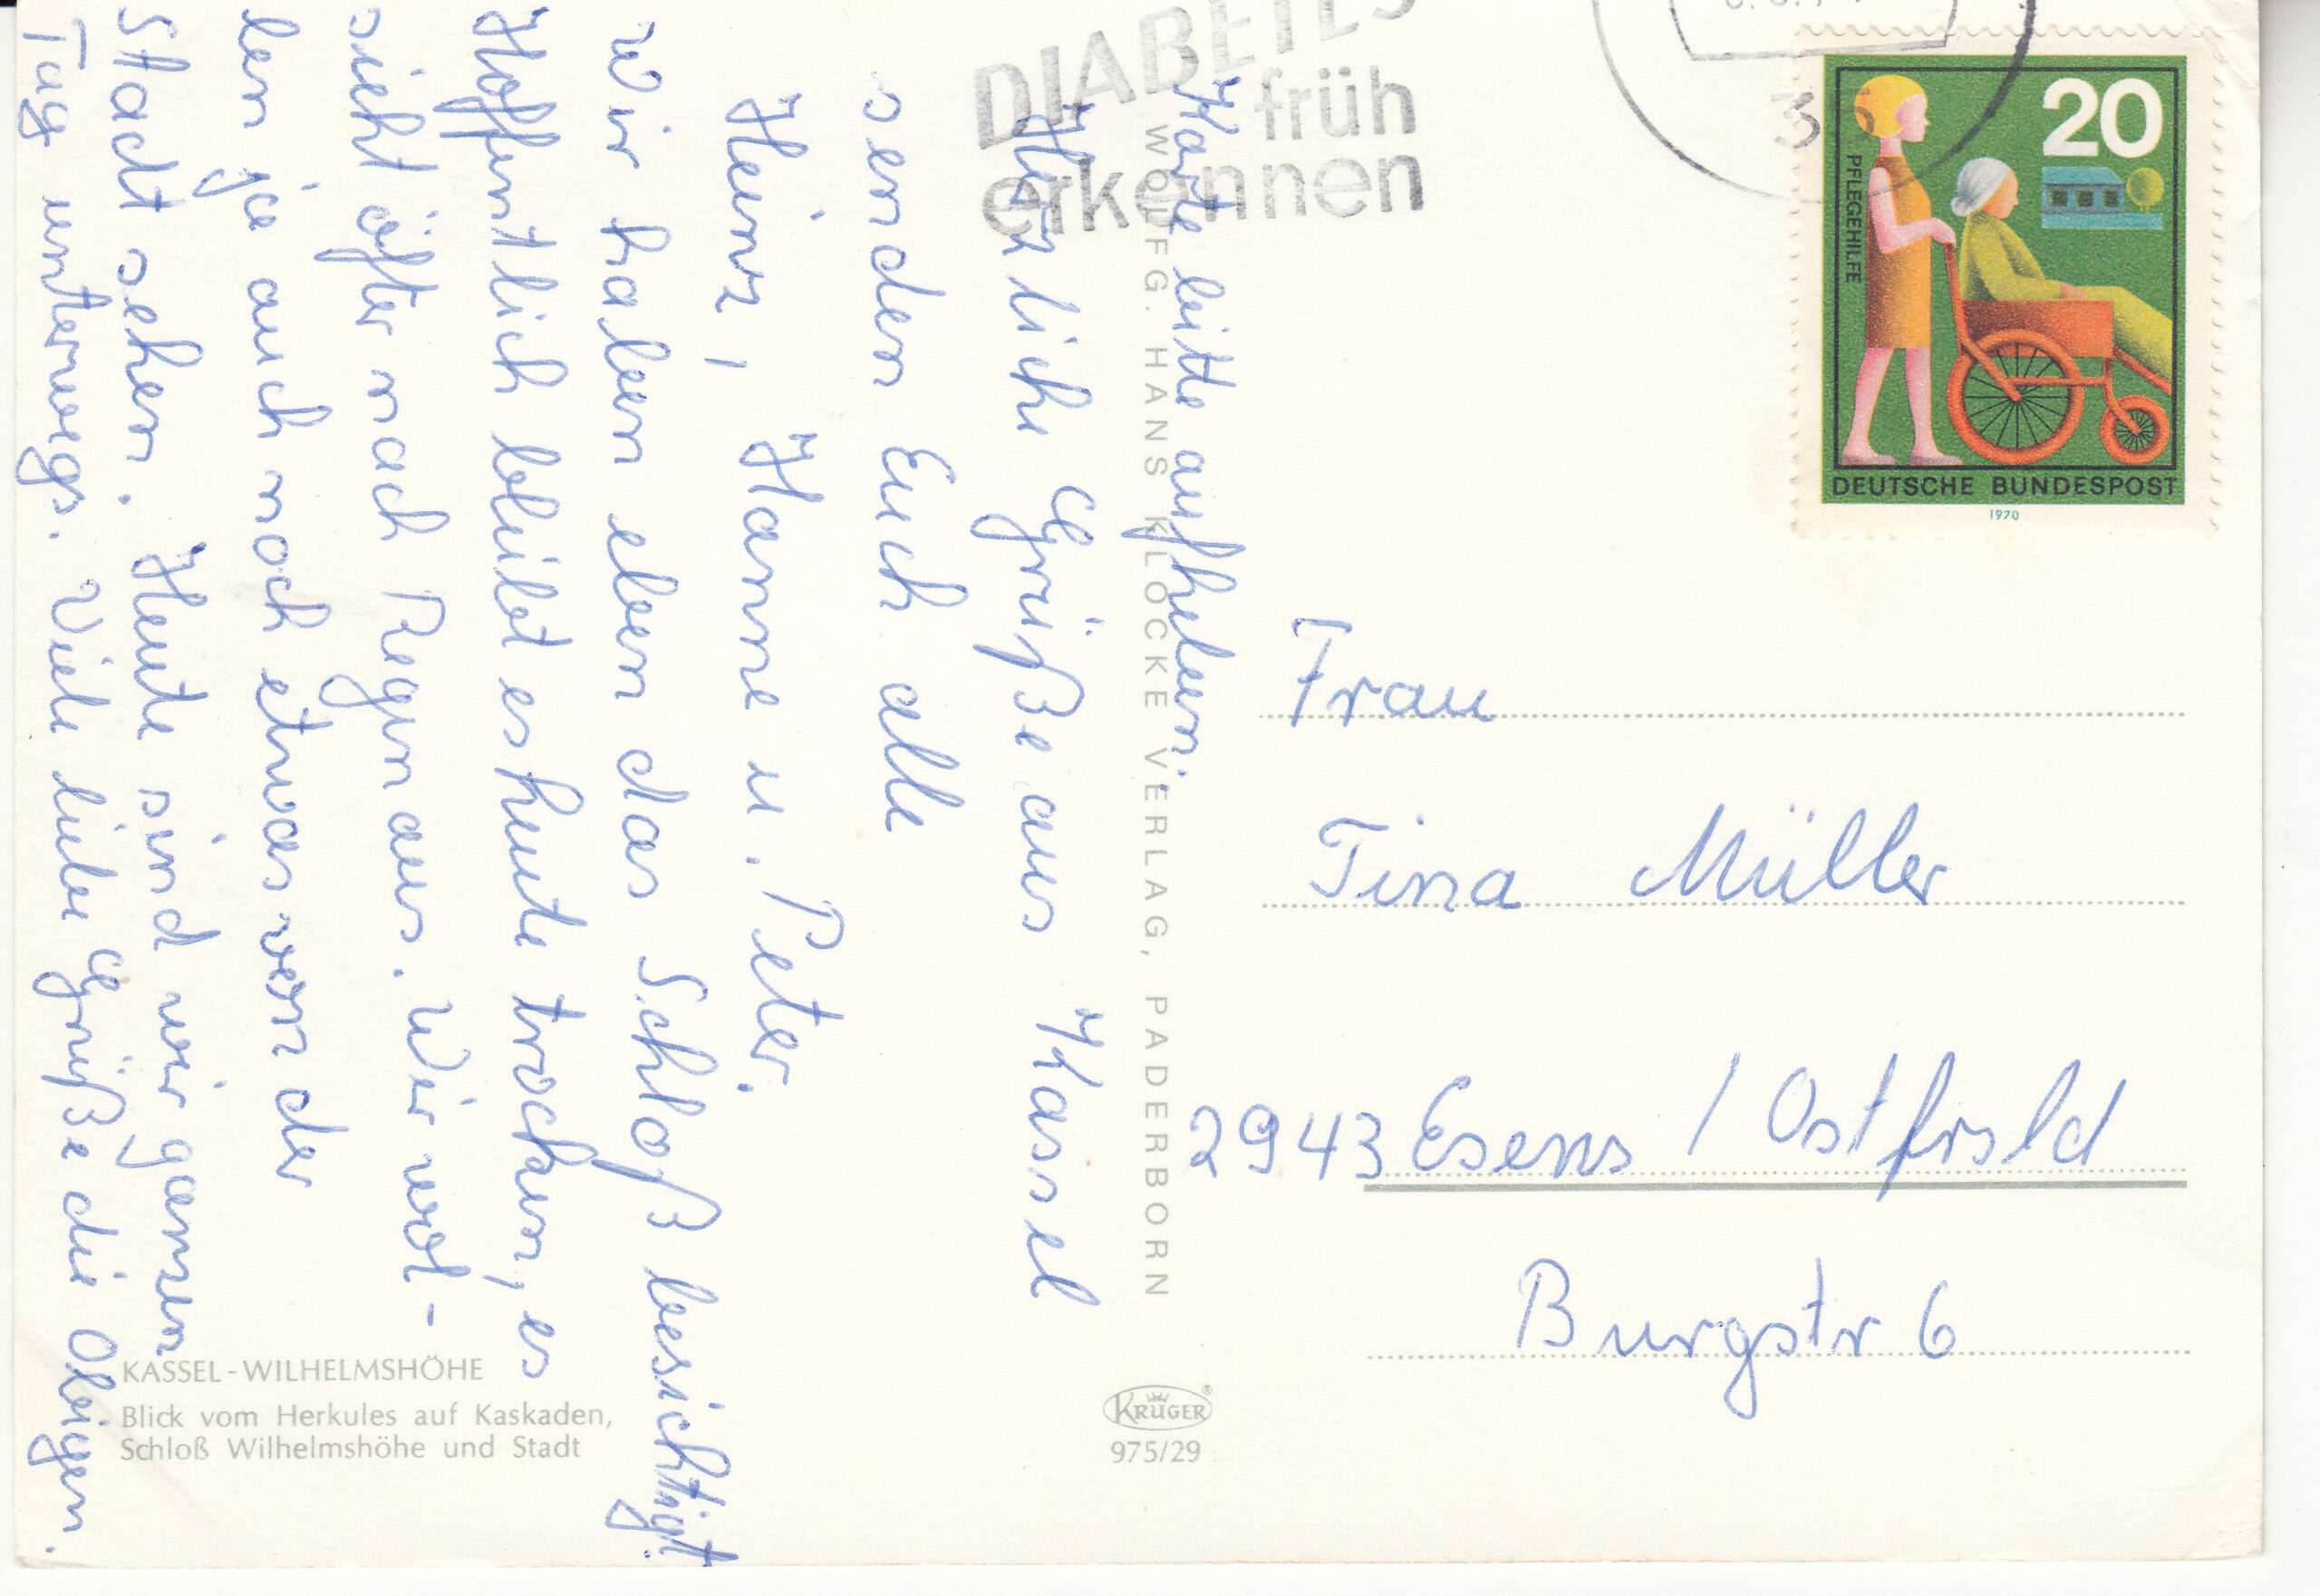 Karte bitte aufheben.
Herzliche Grüße aus Kassel
senden Euch alle
Heinz, Hanne u. Peter.
Wir haben eben das Schloß besichtigt.
Hoffentlich bleibt es heute trocken, es
sieht öfter nach Regen aus. Wir wol-
len ja auch noch etwas von der
Stadt sehen. Heute sind wir ganzen
Tag unterwegs. Viele liebe Grüße die Obigen.
WOLFG. HANS KLOCKE VERLAG, PADERBORN
KASSEL-WILHELMSHÖHE
Blick vom Herkules auf Kaskaden,
Schloß Wilhelmshöhe und Stadt
KRÜGER®
975/29
DIABETES
früh
erkennen
20
PFLEGEHILFE
DEUTSCHE BUNDESPOST
1970
Frau
Tina Müller
2943 Esens / Ostfrsld
Burgstr 6